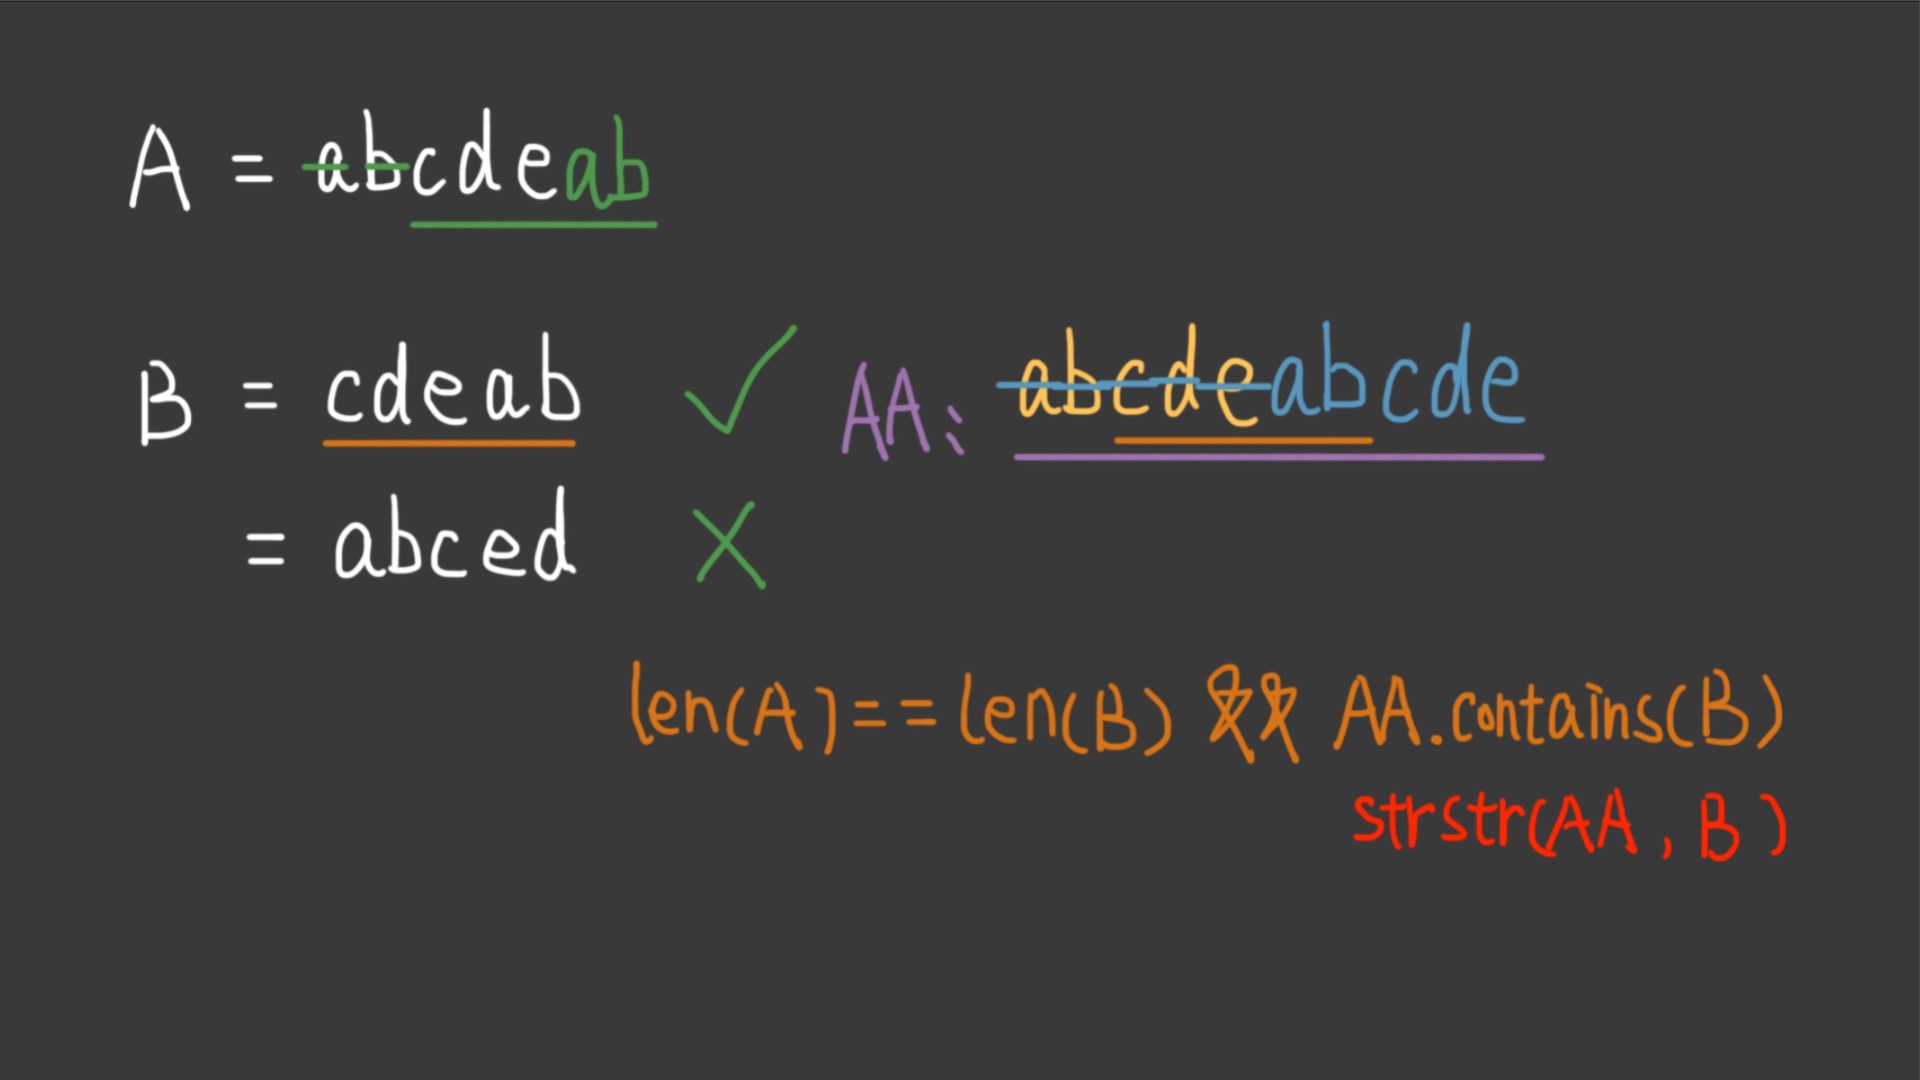 A = abcdeab
B = cdeab ✓ AA: abcdeabcde
= abced X
len(A)==len(B) && AA.contains(B)
strstr(AA, B)